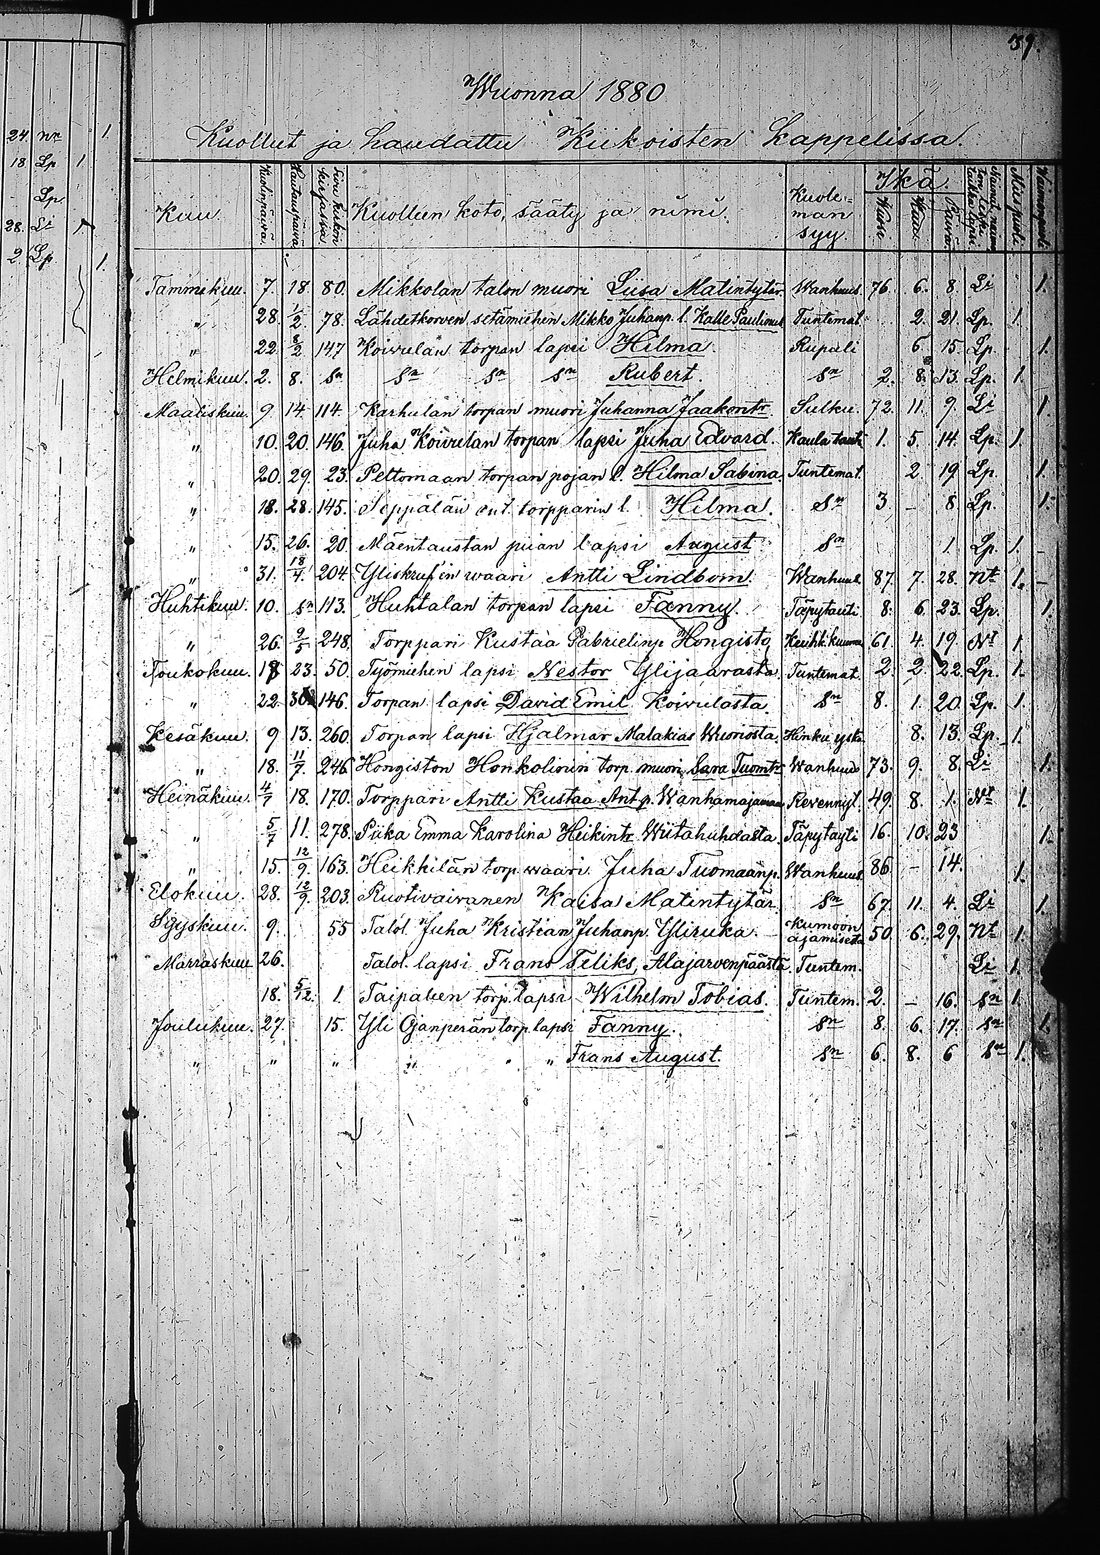 24. nr 1.
18 Lp 1
Lp
28. Li 1
2. Lp 1.
39.
Wuonna 1880
Kuollut ja haudattu Kiikoisten kappelissa.
Kuu. Kuolinpäivä. Hautauspäivä. kirjassa. Kuolleen koto, sääty ja nimi. Kuole-man syy. Ikä. Wuosi. Kuusi. Päivä. Miespuoli Waimopuoli
Tammikuu. 7. 18. 80. Mikkolan talon muori Liisa Matintytär. Wanhuus. 76. 6. 8. Li 1.
" 28. 1/2 78. Lähdetkorven setämiehen Mikko Juhanp. l. Kalle Paulinus Tuntemat. 2. 21. Lp. 1.
" 22. 8/2 147 Koivulan torpan lapsi Hilma. Rupuli 6. 15. Lp. 1.
Helmikuu. 2. 8. sn sn sn sn Rubert. sn 2. 8. 13. Lp. 1.
Maaliskuu. 9. 14. 114. Karhulan torpan muori Juhanna Jaakontr. Sulku. 72. 11. 9. Li 1.
" 10. 20. 146. Juha Koivulan torpan lapsi Juha Edvard. Kaula tauti 1. 5. 14. Lp. 1.
" 20. 29. 23. Peltomaan torpan pojan l. Hilma Sabina. Tuntemat. 2. 19. Lp. 1.
" 18. 28. 145. Seppälän ent. torpparin l. Hilma. sn 3 – 8. Lp. 1.
" 15. 26. 20. Mäentaustan piian lapsi August sn 1. Lp. 1.
" 31. 18/4 204. Yliskruf'in waari Antti Lindbom. Wanhuus. 87. 7. 28. Nt 1.
Huhtikuu. 10. sn 113. Huhtalan torpan lapsi Fanny. Täpytauti 8. 6. 23. Lp. 1.
" 26. 2/5 248. Torppari Kustaa Gabrielinp Hongisto Keuhk.kuume 61. 4. 19. Nt 1.
Toukokuu. 18 23. 50. Työmiehen lapsi Nestor Ylijaarasta. Tuntemat. 2. 2. 22. Lp. 1.
" 22. 30 146. Torpan lapsi David Emil Koivulasta. sn 8. 1. 20. Lp. 1.
Kesäkuu. 9 13. 260. Torpan lapsi Hjalmar Malakias Wuoriosta. Hinku yskä 8. 13. Lp. 1.
" 18. 11/7 246 Hongiston Honkoliinin torp. muori Sara Tuomtr Wanhuus 73. 9. 8. Li 1.
Heinäkuu. 4/7 18. 170. Torppari Antti Kustaa Antp. Revennyt. 49. 8. 1. Nt 1.
" 5/7 11. 278. Piika Emma Karolina Heikintr Wiitahuhdasta. Täpytauti 16. 10. 23 1.
" 15. 12/9 163. Heikkilän torp. waari Juha Tuomaanp. Wanhuus. 86 – 14. 1.
Elokuu. 28. 12/9 203. Ruotivaivanen Kaisa Matintytär. sn 67. 11. 4. Li 1.
Syyskuu. 9. 55 Talol. Juha Kristian Juhanp. Yliruka. kumoon ajamisesta 50. 6. 29. Nt 1.
Marraskuu 26. Talol. lapsi Frans Feliks, Alajarvenpäästä Tuntem. Li 1.
18. 5/12 1. Taipaleen torp. lapsi Wilhelm Tobias. Tuntem. 2. – 16. sn 1.
Joulukuu. 27. 15. Yli Ganperän torp. lapsi Fanny. sn 8. 6. 17. sn 1.
" " " " " " Frans August. sn 6. 8. 6 sn 1.